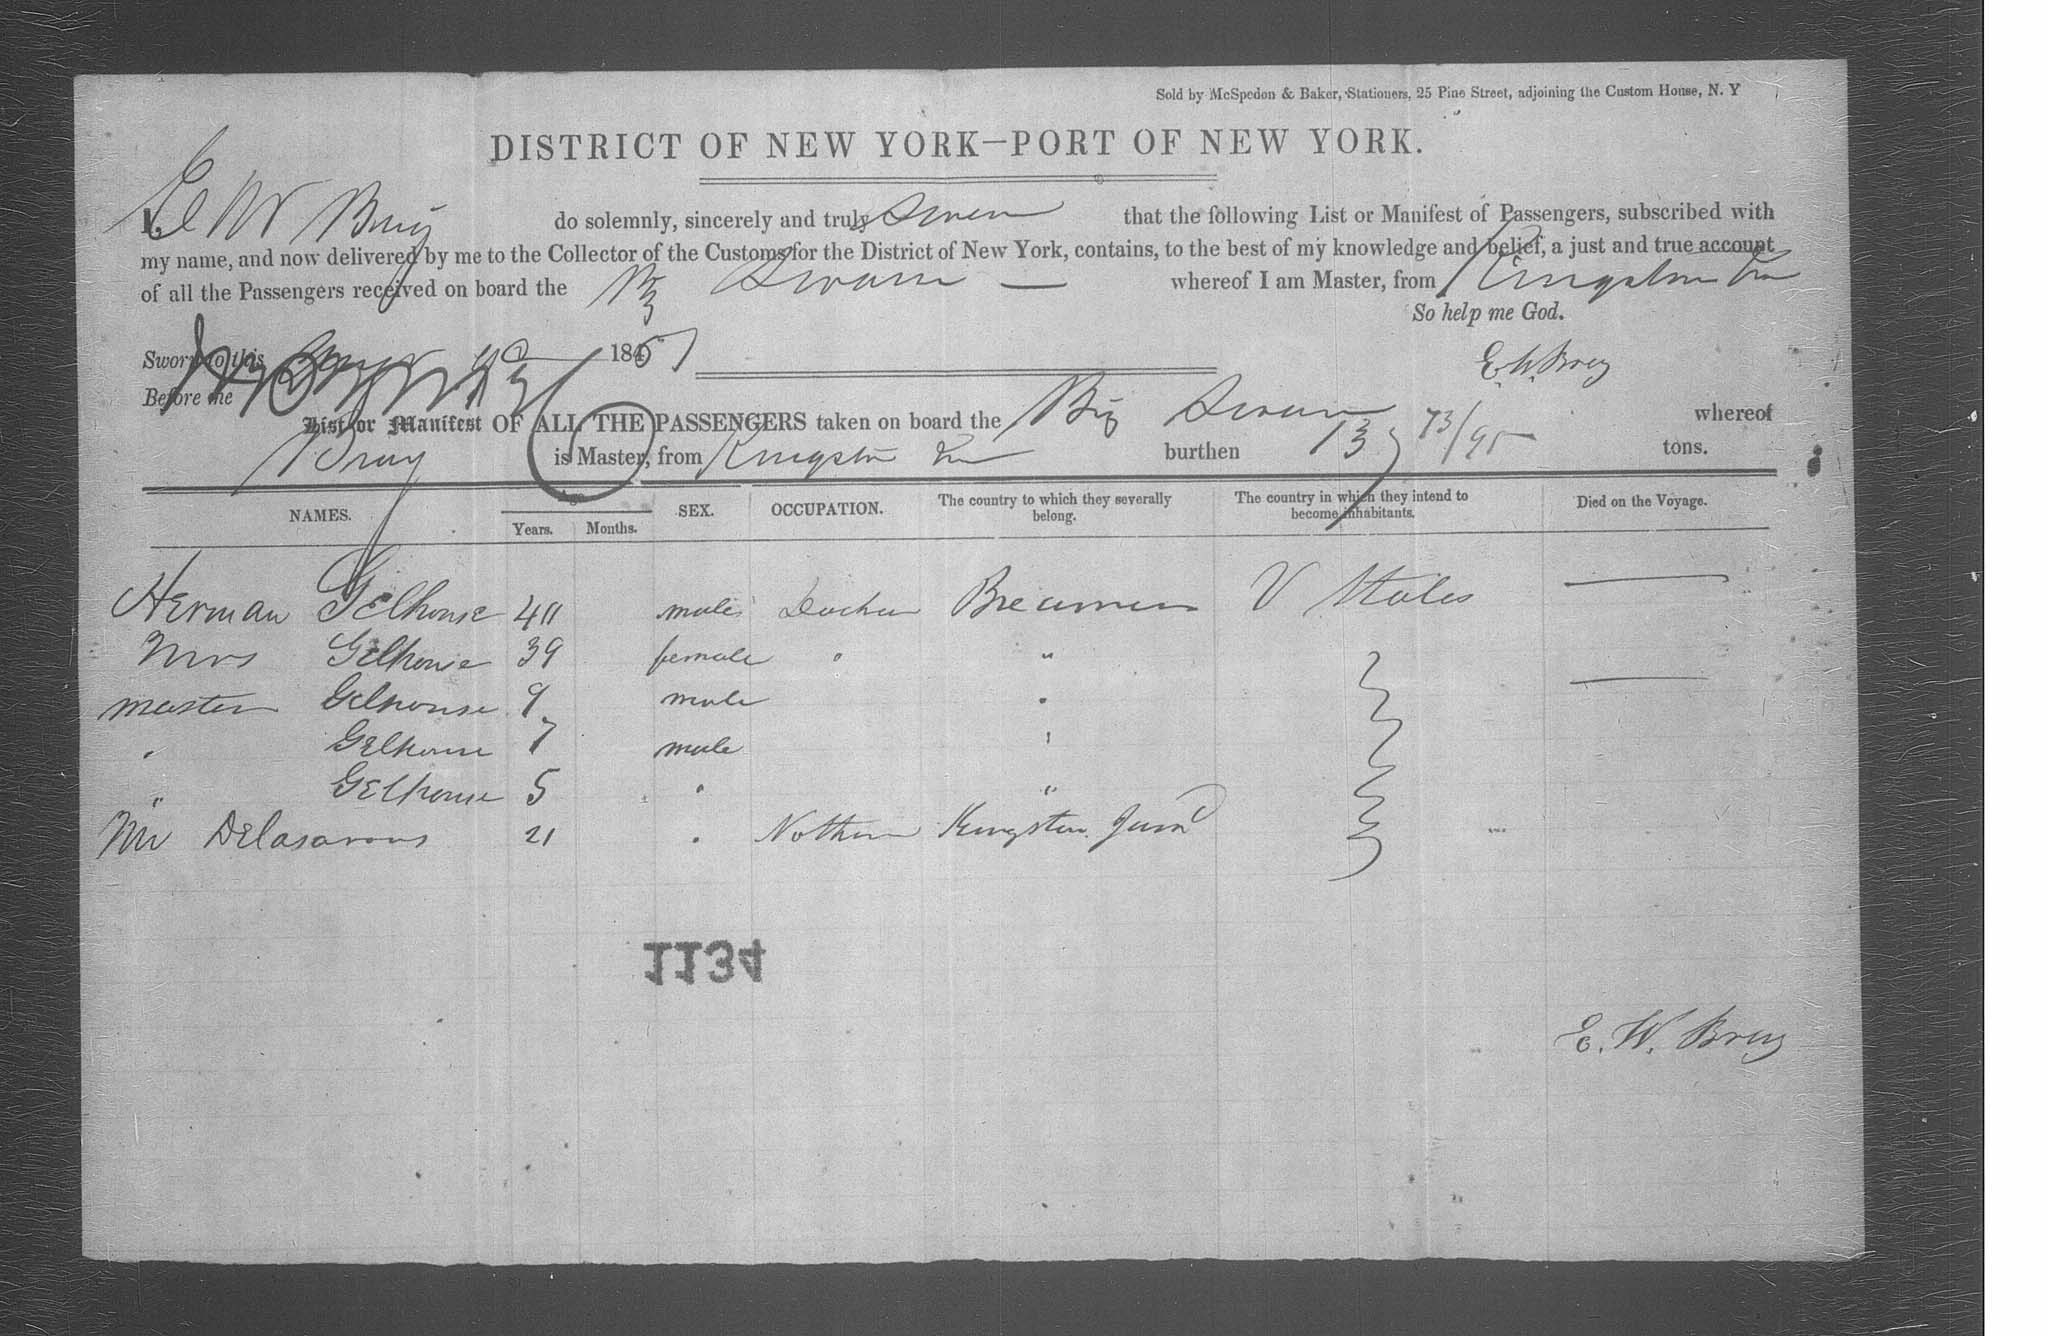 Sold by McSpedon & Baker, Stationers, 25 Pine Street, adjoining the Custom House, N. Y
DISTRICT OF NEW YORK—PORT OF NEW YORK.
I, E W Bray do solemnly, sincerely and truly Swear that the following List or Manifest of Passengers, subscribed with
my name, and now delivered by me to the Collector of the Customs for the District of New York, contains, to the best of my knowledge and belief, a just and true account
of all the Passengers received on board the Brig Swan — whereof I am Master, from Kingston
So help me God.
Sworn to this 1851
E. W. Bray
Before me
List or Manifest OF ALL THE PASSENGERS taken on board the Brig Swan whereof
Bray is Master, from Kingston burthen 73/95 tons.
NAMES. Age Years. Months. SEX. OCCUPATION. The country to which they severally belong. The country in which they intend to become inhabitants. Died on the Voyage.
Herman Gelhouse 40 male Breamen U States
Mrs Gelhouse 39 female "
master Gelhouse 9 male "
" Gelhouse 7 male "
" Gelhouse 5 " "
Mr 21 " Kingston
1134
E. W. Bray